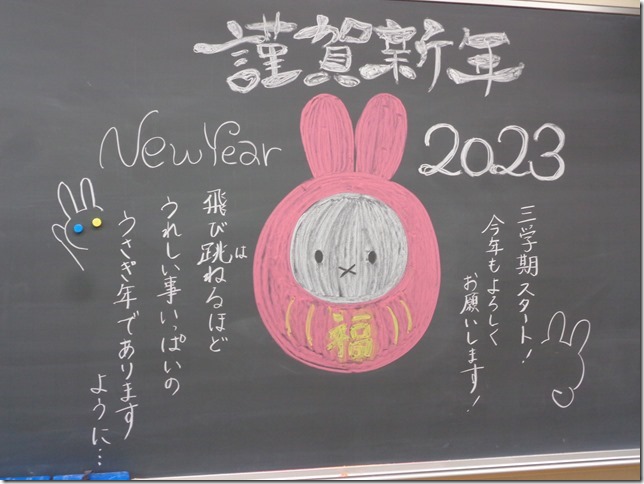 謹賀新年
New Year 2023
三学期スタート!
今年もよろしく
お願いします!
福
飛び跳ねるほど
は
うれしい事いっぱいの
うさぎ年であります
ように…